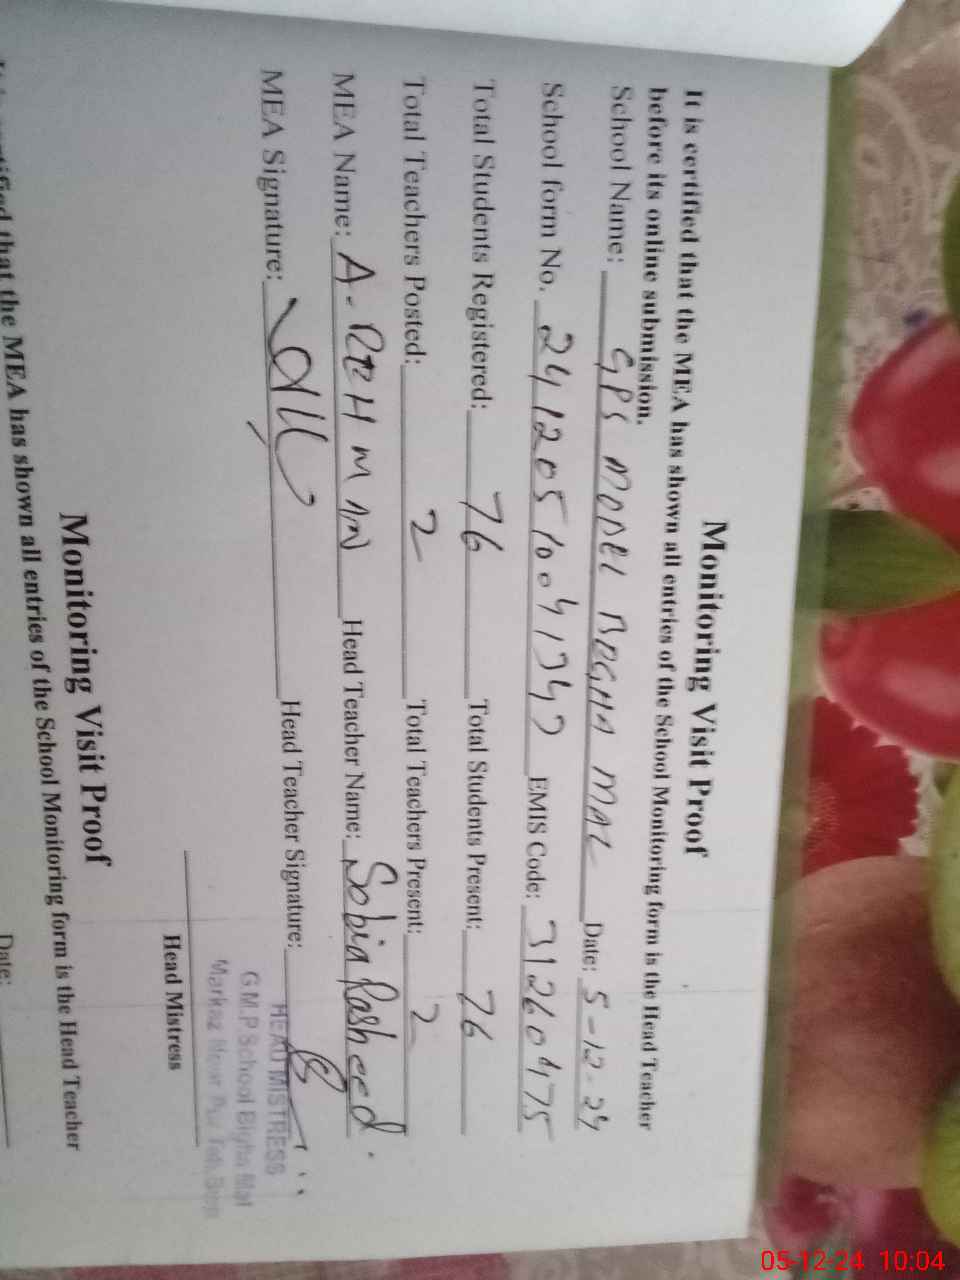 Monitoring Visit Proof
It is certified that the MEA has shown all entries of the School Monitoring form is the Head Teacher
before its online submission.
School Name: GPS MODEL BOGHA MAL Date: 5-12-24
School form No. 2412051004134 EMIS Code: 31260475
Total Students Registered: 76 Total Students Present: 76
Total Teachers Posted: 2 Total Teachers Present: 2
MEA Name: A-REHMAN Head Teacher Name: Sobia Rasheed.
MEA Signature: Head Teacher Signature:
HEAD MISTRESS
G.M.P.School Bigha Mal
Markaz Noor
Head Mistress
Monitoring Visit Proof
It is certified that the MEA has shown all entries of the School Monitoring form is the Head Teacher
Date:
05-12-24 10:04